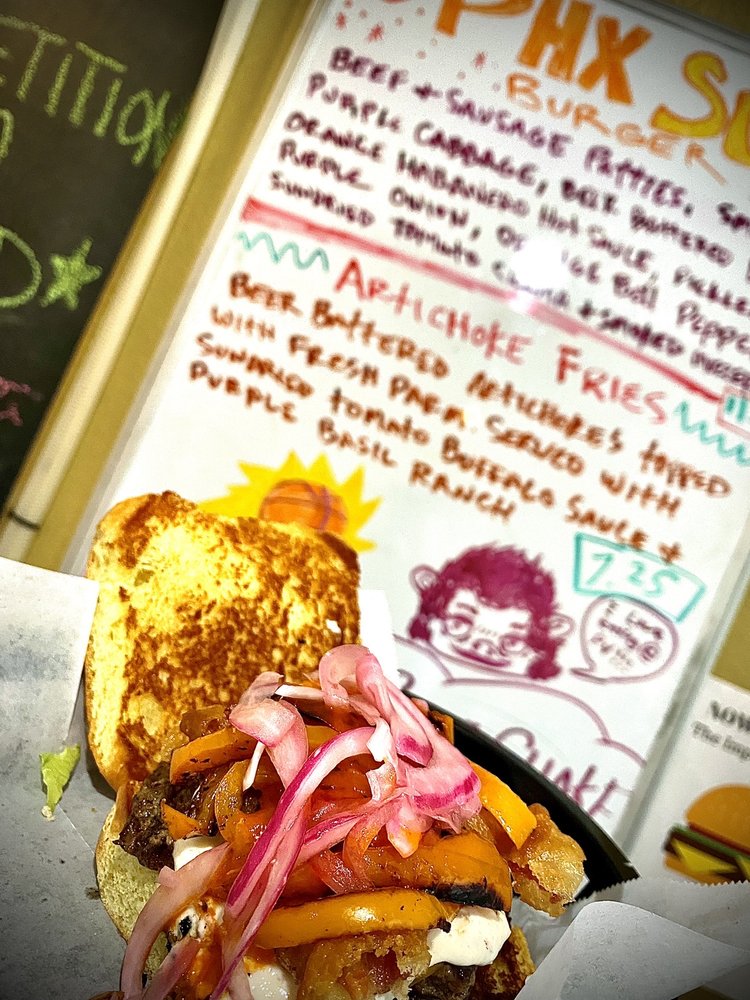 ETITION
PHX SU
BURGER
BEEF + SAUSAGE PATTIES,
PURPLE CABBAGE, BEER BATTERED
ORANGE HABANERO HOT SAUCE, PICKLE
PURPLE ONION, ORANGE BELL PEPPE
SUNDRIED TOMATO + SMOKED
ARTICHOKE FRIES
BEER BATTERED ARTICHOKES TOPPED
WITH FRESH PARM. SERVED WITH
SUNDRIED TOMATO BUFFALO SAUCE +
PURPLE BASIL RANCH
7.25
I LOVE
SHAKE
NOW
The Imp